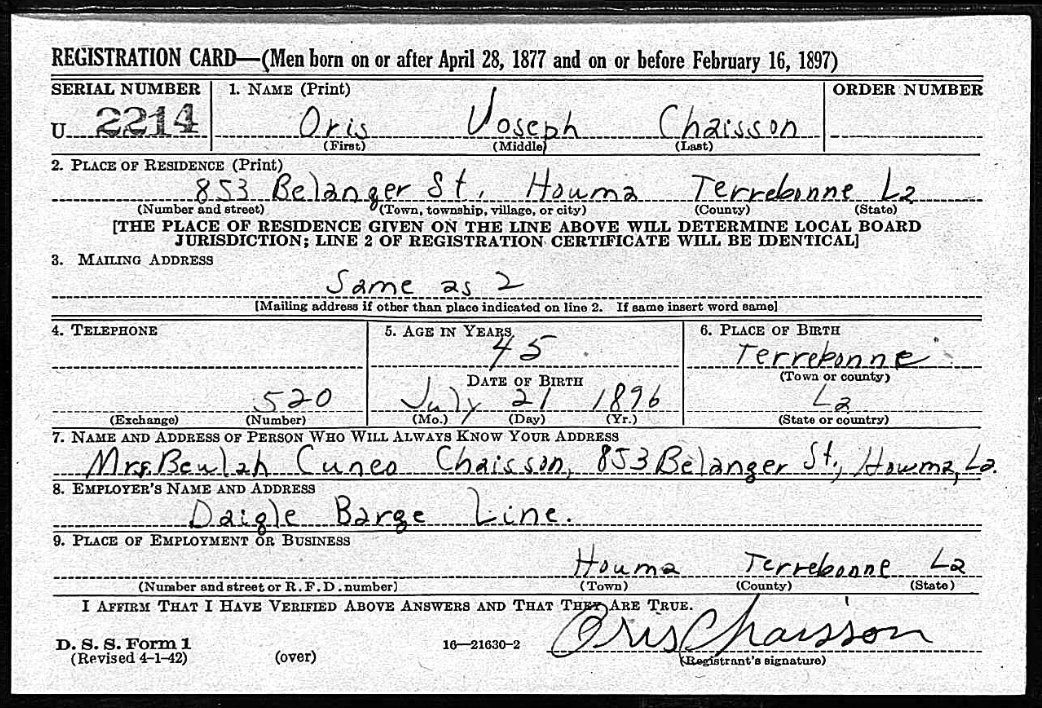 REGISTRATION CARD—(Men born on or after April 28, 1877 and on or before February 16, 1897)
SERIAL NUMBER
1. NAME (Print)
ORDER NUMBER
U 2214
Oris Joseph Chaisson
(First) (Middle) (Last)
2. PLACE OF RESIDENCE (Print)
853 Belanger St, Houma Terrebonne La
(Number and street) (Town, township, village, or city) (County) (State)
[THE PLACE OF RESIDENCE GIVEN ON THE LINE ABOVE WILL DETERMINE LOCAL BOARD
JURISDICTION; LINE 2 OF REGISTRATION CERTIFICATE WILL BE IDENTICAL]
3. MAILING ADDRESS
Same as 2
[Mailing address if other than place indicated on line 2. If same insert word same]
4. TELEPHONE
520
(Exchange) (Number)
5. AGE IN YEARS
45
DATE OF BIRTH
July 21 1896
(Mo.) (Day) (Yr.)
6. PLACE OF BIRTH
Terrebonne
(Town or county)
La
(State or country)
7. NAME AND ADDRESS OF PERSON WHO WILL ALWAYS KNOW YOUR ADDRESS
Mrs. Beulah Cuneo Chaisson, 853 Belanger St., Houma, La.
8. EMPLOYER'S NAME AND ADDRESS
Daigle Barge Line.
9. PLACE OF EMPLOYMENT OR BUSINESS
Houma Terrebonne La
(Number and street or R. F. D. number) (Town) (County) (State)
I AFFIRM THAT I HAVE VERIFIED ABOVE ANSWERS AND THAT THEY ARE TRUE.
D. S. S. Form 1
(Revised 4-1-42)
(over)
16—21630-2
Oris Chaisson
(Registrant's signature)